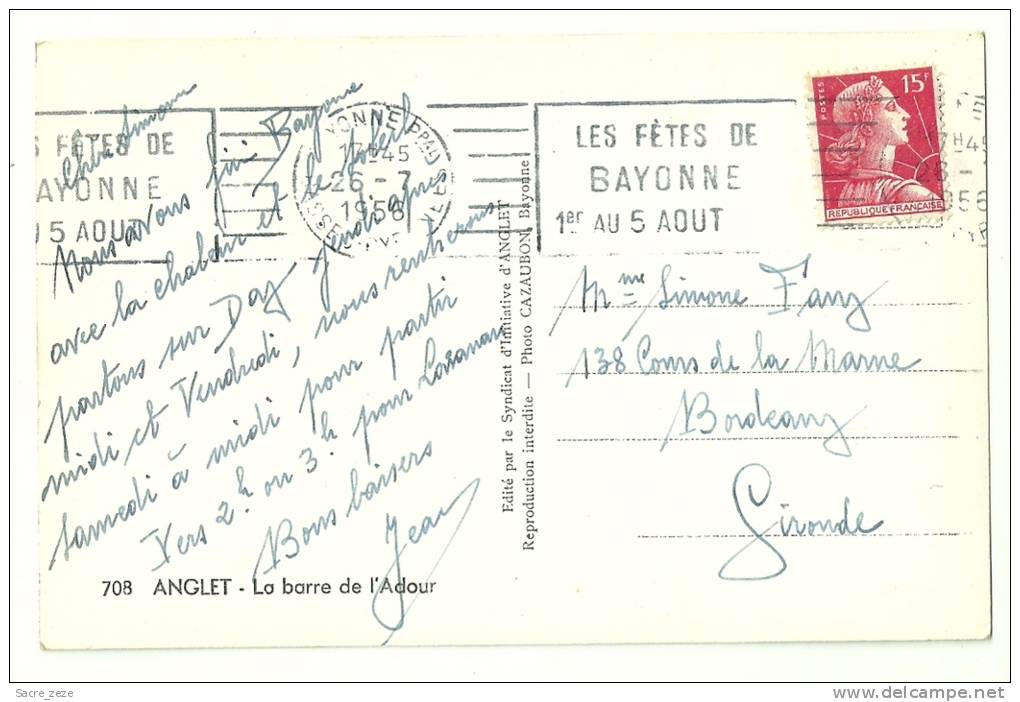 Chère Simone
Nous avons fini Bayonne
avec la chaleur et le soleil
partons sur Dax Jeudi après
midi et Vendredi, nous rentrerons
Samedi à midi pour partir
Vers 2h ou 3h pour
Bons baisers
Jean
708 ANGLET - La barre de l'Adour
Edité par le Syndicat d'Initiative d'ANGLET
Reproduction interdite — Photo CAZAUBON, Bayonne
S FÊTES DE
BAYONNE
U 5 AOUT
YONNE PPAL
17H45
26-7
1956
LES FÊTES DE
BAYONNE
1er AU 5 AOUT
POSTES
15F
REPUBLIQUE FRANÇAISE
7H45
56
Mme Simone
138 Cours de la Marne
Bordeaux
Gironde
Sacre_zeze
delcampe.net